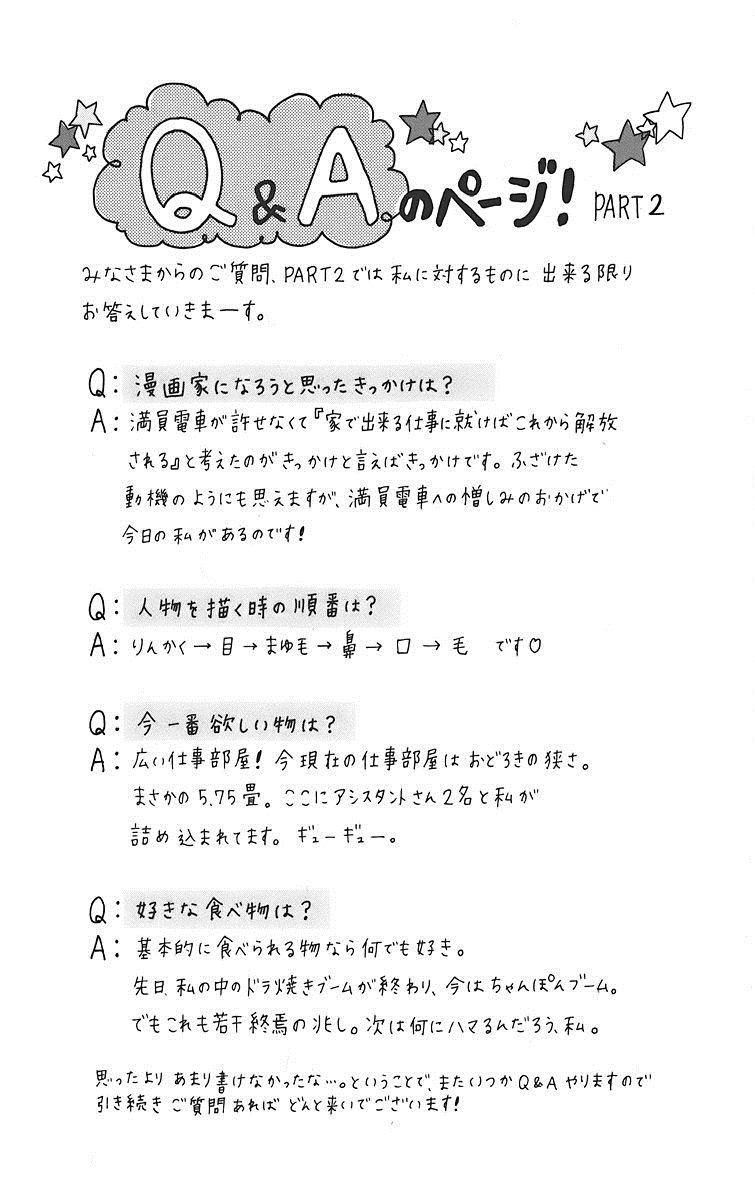 Q&Aのページ! PART2
みなさまからのご質問、PART2では私に対するものに出来る限り
お答えしていきまーす。
Q: 漫画家になろうと思ったきっかけは?
A: 満員電車が許せなくて『家で出来る仕事に就けばこれから解放
される』と考えたのがきっかけと言えばきっかけです。ふざけた
動機のようにも思えますが、満員電車への憎しみのおかげで
今日の私があるのです!
Q: 人物を描く時の順番は?
A: りんかく→目→まゆ毛→鼻→口→毛 です♡
Q: 今一番欲しい物は?
A: 広い仕事部屋! 今現在の仕事部屋はおどろきの狭さ。
まさかの5.75畳。ここにアシスタントさん2名と私が
詰め込まれてます。ギューギュー。
Q: 好きな食べ物は?
A: 基本的に食べられる物なら何でも好き。
先日、私の中のドラ焼きブームが終わり、今はちゃんぽんブーム。
でもこれも若干終焉の兆し。次は何にハマるんだろう、私。
思ったよりあまり書けなかったな…。ということで、またいつかQ&Aやりますので
引き続きご質問あればどんと来いでございます!